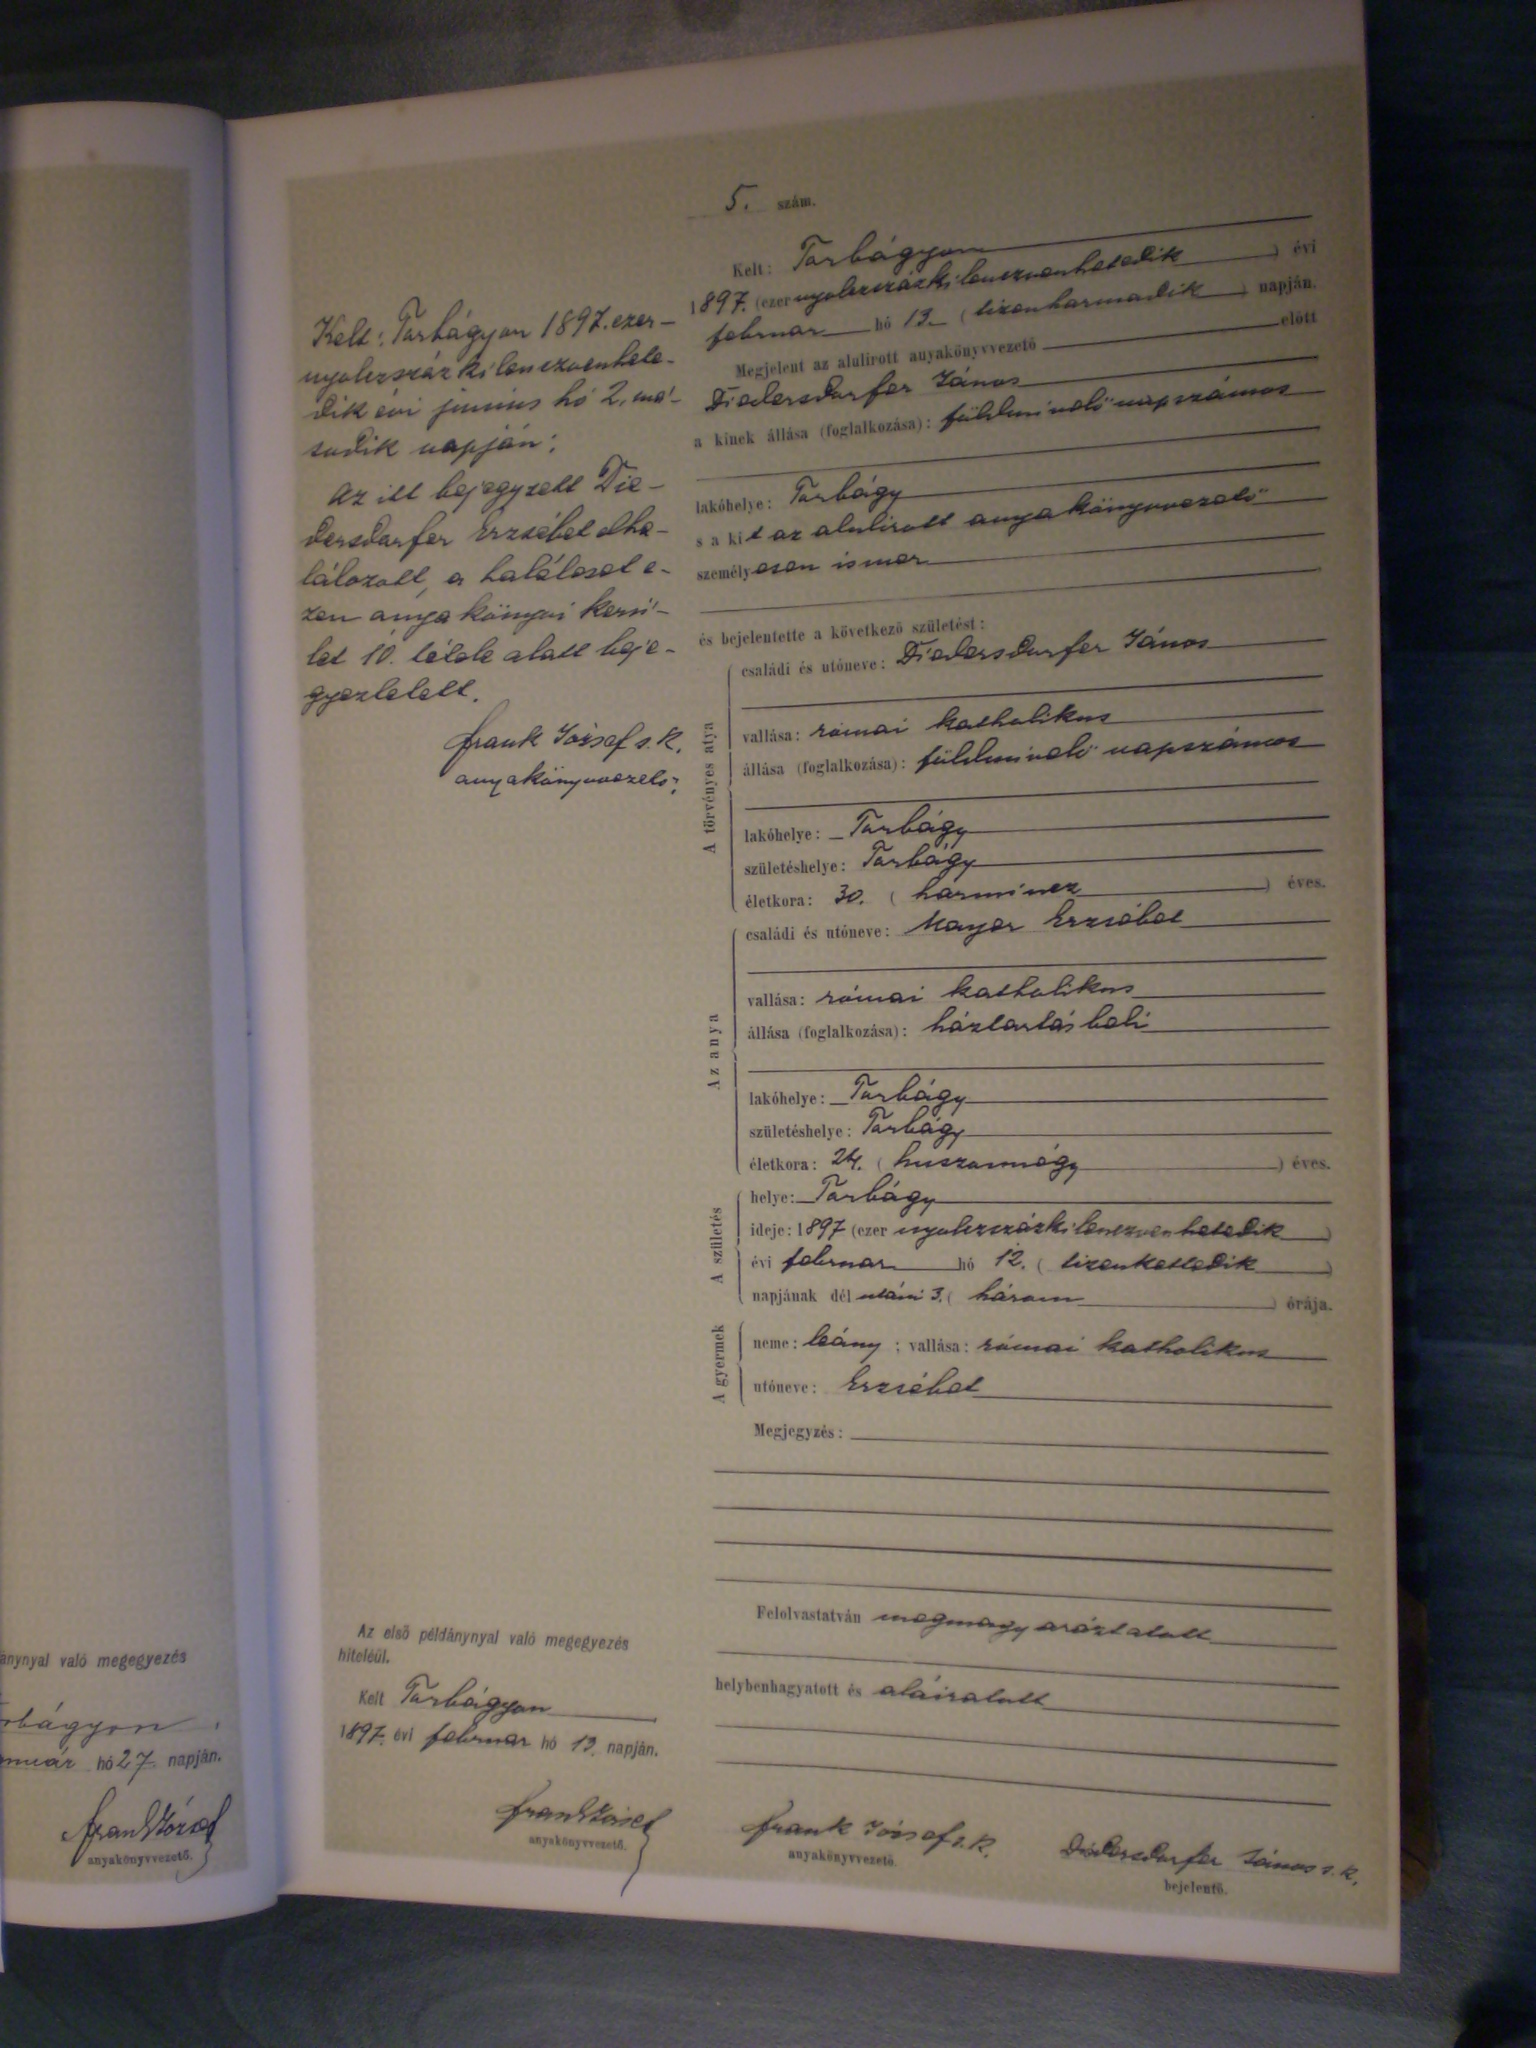 5. szám.
Kelt: Torbágyon
1897. (ezer nyolczszázkilenczvenhetedik) évi
február hó 13. (tizenharmadik) napján.
Megjelent az alulirott anyakönyvvezető előtt
Diedersdorfer János
a kinek állása (foglalkozása): földmivelő napszámos
lakóhelye: Torbágy
s a kit az alulirott anyakönyvvezető
személyesen ismer
és bejelentette a következő születést:
A törvényes atya
családi és utóneve: Diedersdorfer János
vallása: római katholikus
állása (foglalkozása): földmivelő napszámos
lakóhelye: Torbágy
születéshelye: Torbágy
életkora: 30. (harmincz) éves.
Az anya
családi és utóneve: Mayer Erzsébet
vallása: római katholikus
állása (foglalkozása): háztartásbeli
lakóhelye: Torbágy
születéshelye: Torbágy
életkora: 24. (huszonnégy) éves.
A születés
helye: Torbágy
ideje: 1897 (ezer nyolczszázkilenczvenhetedik)
évi február hó 12. (tizenkettedik)
napjának dél utáni 3. (három) órája.
A gyermek
neme: leány; vallása: római katholikus
utóneve: Erzsébet
Megjegyzés:
Felolvastatván megmagyaráztatott
helybenhagyatott és aláiratott
Frank József s. k.
anyakönyvvezető.
Diedersdorfer János s. k.
bejelentő.
Kelt: Torbágyon 1897. ezer-
nyolczszázkilenczvenhete-
dik évi junius hó 2. má-
sodik napján:
Az itt bejegyzett Die-
dersdorfer Erzsébet elha-
lálozott, a haláleset e-
zen anyakönyvi kerü-
let 10. tétele alatt beje-
gyeztetett.
Frank József s. k.
anyakönyvvezető;
Az első példánynyal való megegyezés
hiteléül.
Kelt Torbágyon
1897. évi február hó 13. napján.
Frank József
anyakönyvvezető.
ánynyal való megegyezés
rbágyon
nuár hó 27. napján.
Frank József
anyakönyvvezető.